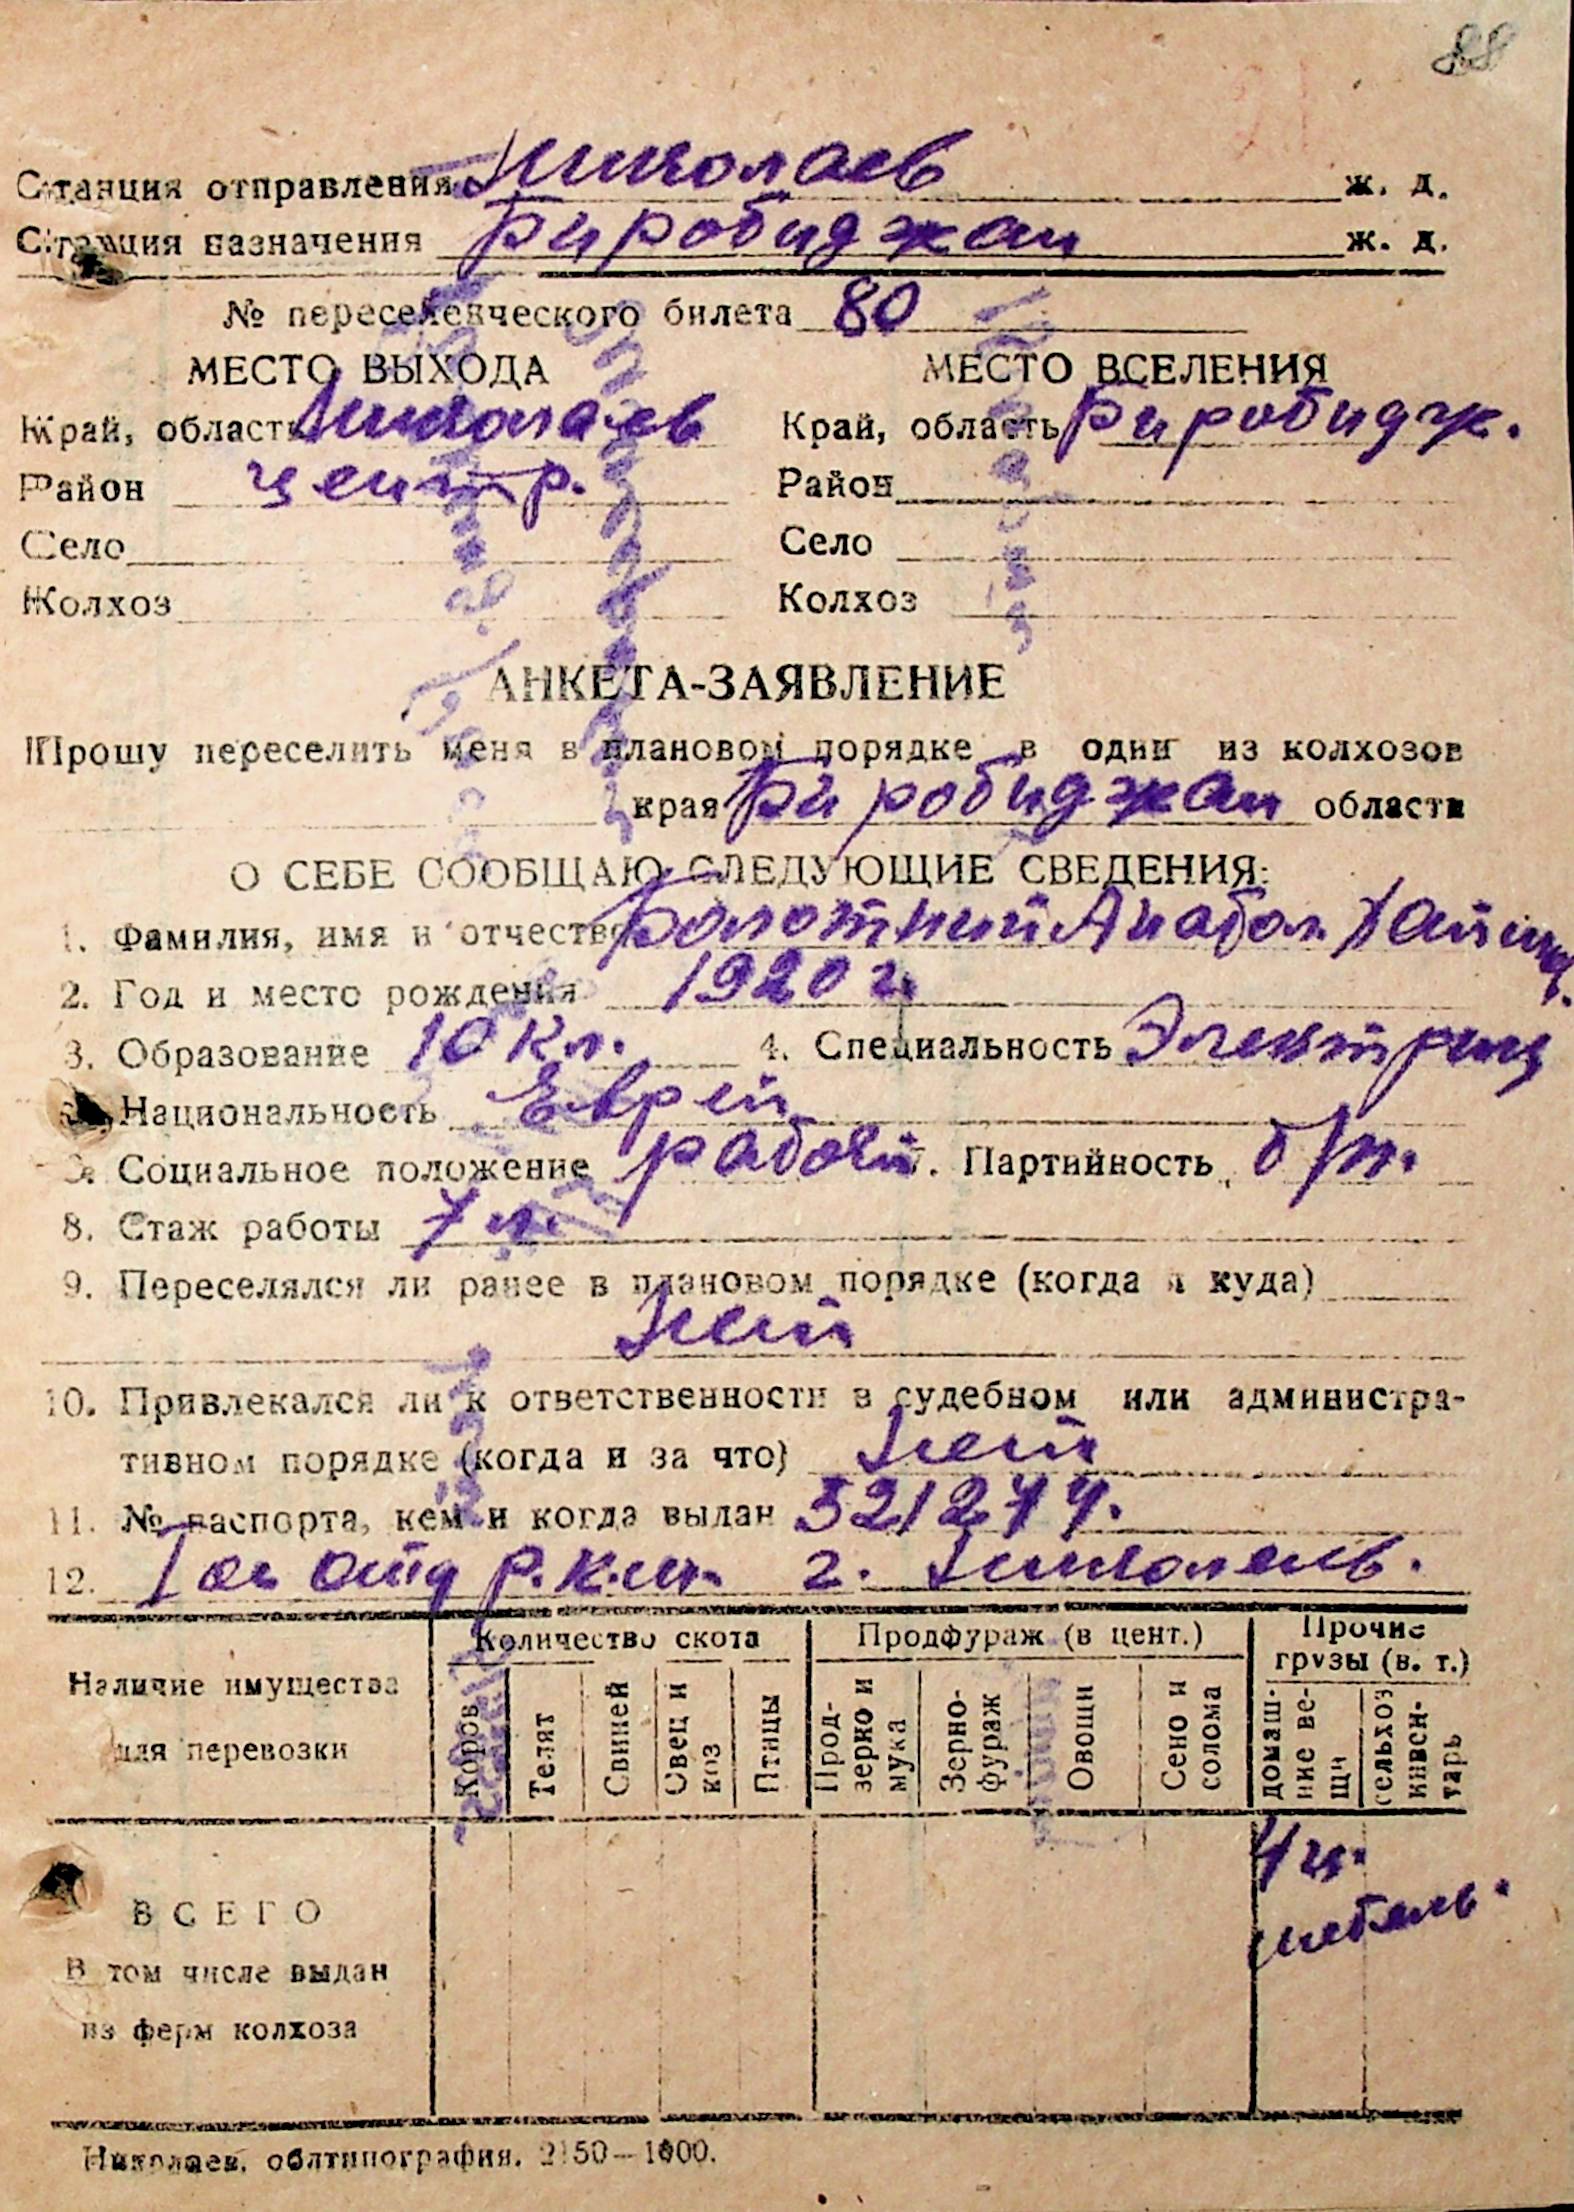 88
Станция отправления Николаев ж. д.
Станция назначения Биробиджан ж. д.
№ переселенческого билета 80
МЕСТО ВЫХОДА МЕСТО ВСЕЛЕНИЯ
Край, область Николаев Край, область Биробидж.
Район центр. Район
Село Село
Колхоз Колхоз
АНКЕТА-ЗАЯВЛЕНИЕ
Прошу переселить меня в плановом порядке в один из колхозов
края Биробиджан области
О СЕБЕ СООБЩАЮ СЛЕДУЮЩИЕ СВЕДЕНИЯ:
1. Фамилия, имя и отчество Болотний Анатол.
2. Год и место рождения 1920 г.
3. Образование 10 кл. 4. Специальность Электрик
Национальность Еврей
Социальное положение рабочий. Партийность б/п.
8. Стаж работы 7 л.
9. Переселялся ли ранее в плановом порядке (когда и куда)
Нет
10. Привлекался ли к ответственности в судебном или администра-
тивном порядке (когда и за что) нет
11. № паспорта, кем и когда выдан
12. отд Р.К.М. г. Николаев.
Наличие имущества для перевозки Количество скота Продфураж (в цент.) Прочие грузы (в. т.)
Коров Телят Свиней Овец и коз Птицы Прод-зерно и мука Зерно-фураж Овощи Сено и солома домаш-ние ве-щи сельхоз инвен-тарь
4 ц.
мебель.
ВСЕГО
В том числе выдан
из ферм колхоза
Николаев, облтипография. 2150—1000.